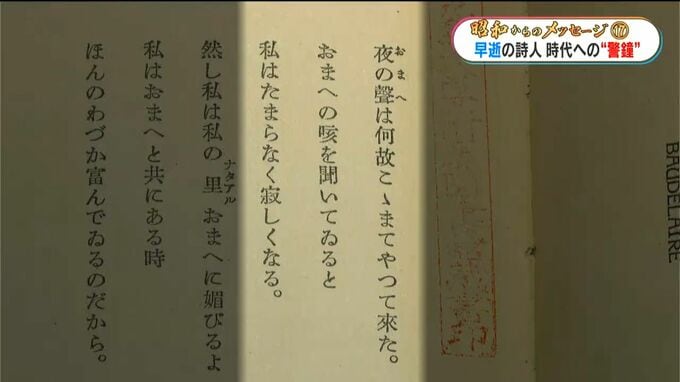 昭和からのメッセージ⑰
早逝の詩人 時代への“警鐘”
おまへ
夜の聲は何故こゝまてやつて來た。
おまへの咳を聞いてゐると
私はたまらなく寂しくなる。
ナタアル
然し私は私の里おまへに媚びるよ
私はおまへと共にある時
ほんのわづか富んでゐるのだから。
BAUDELAIRE